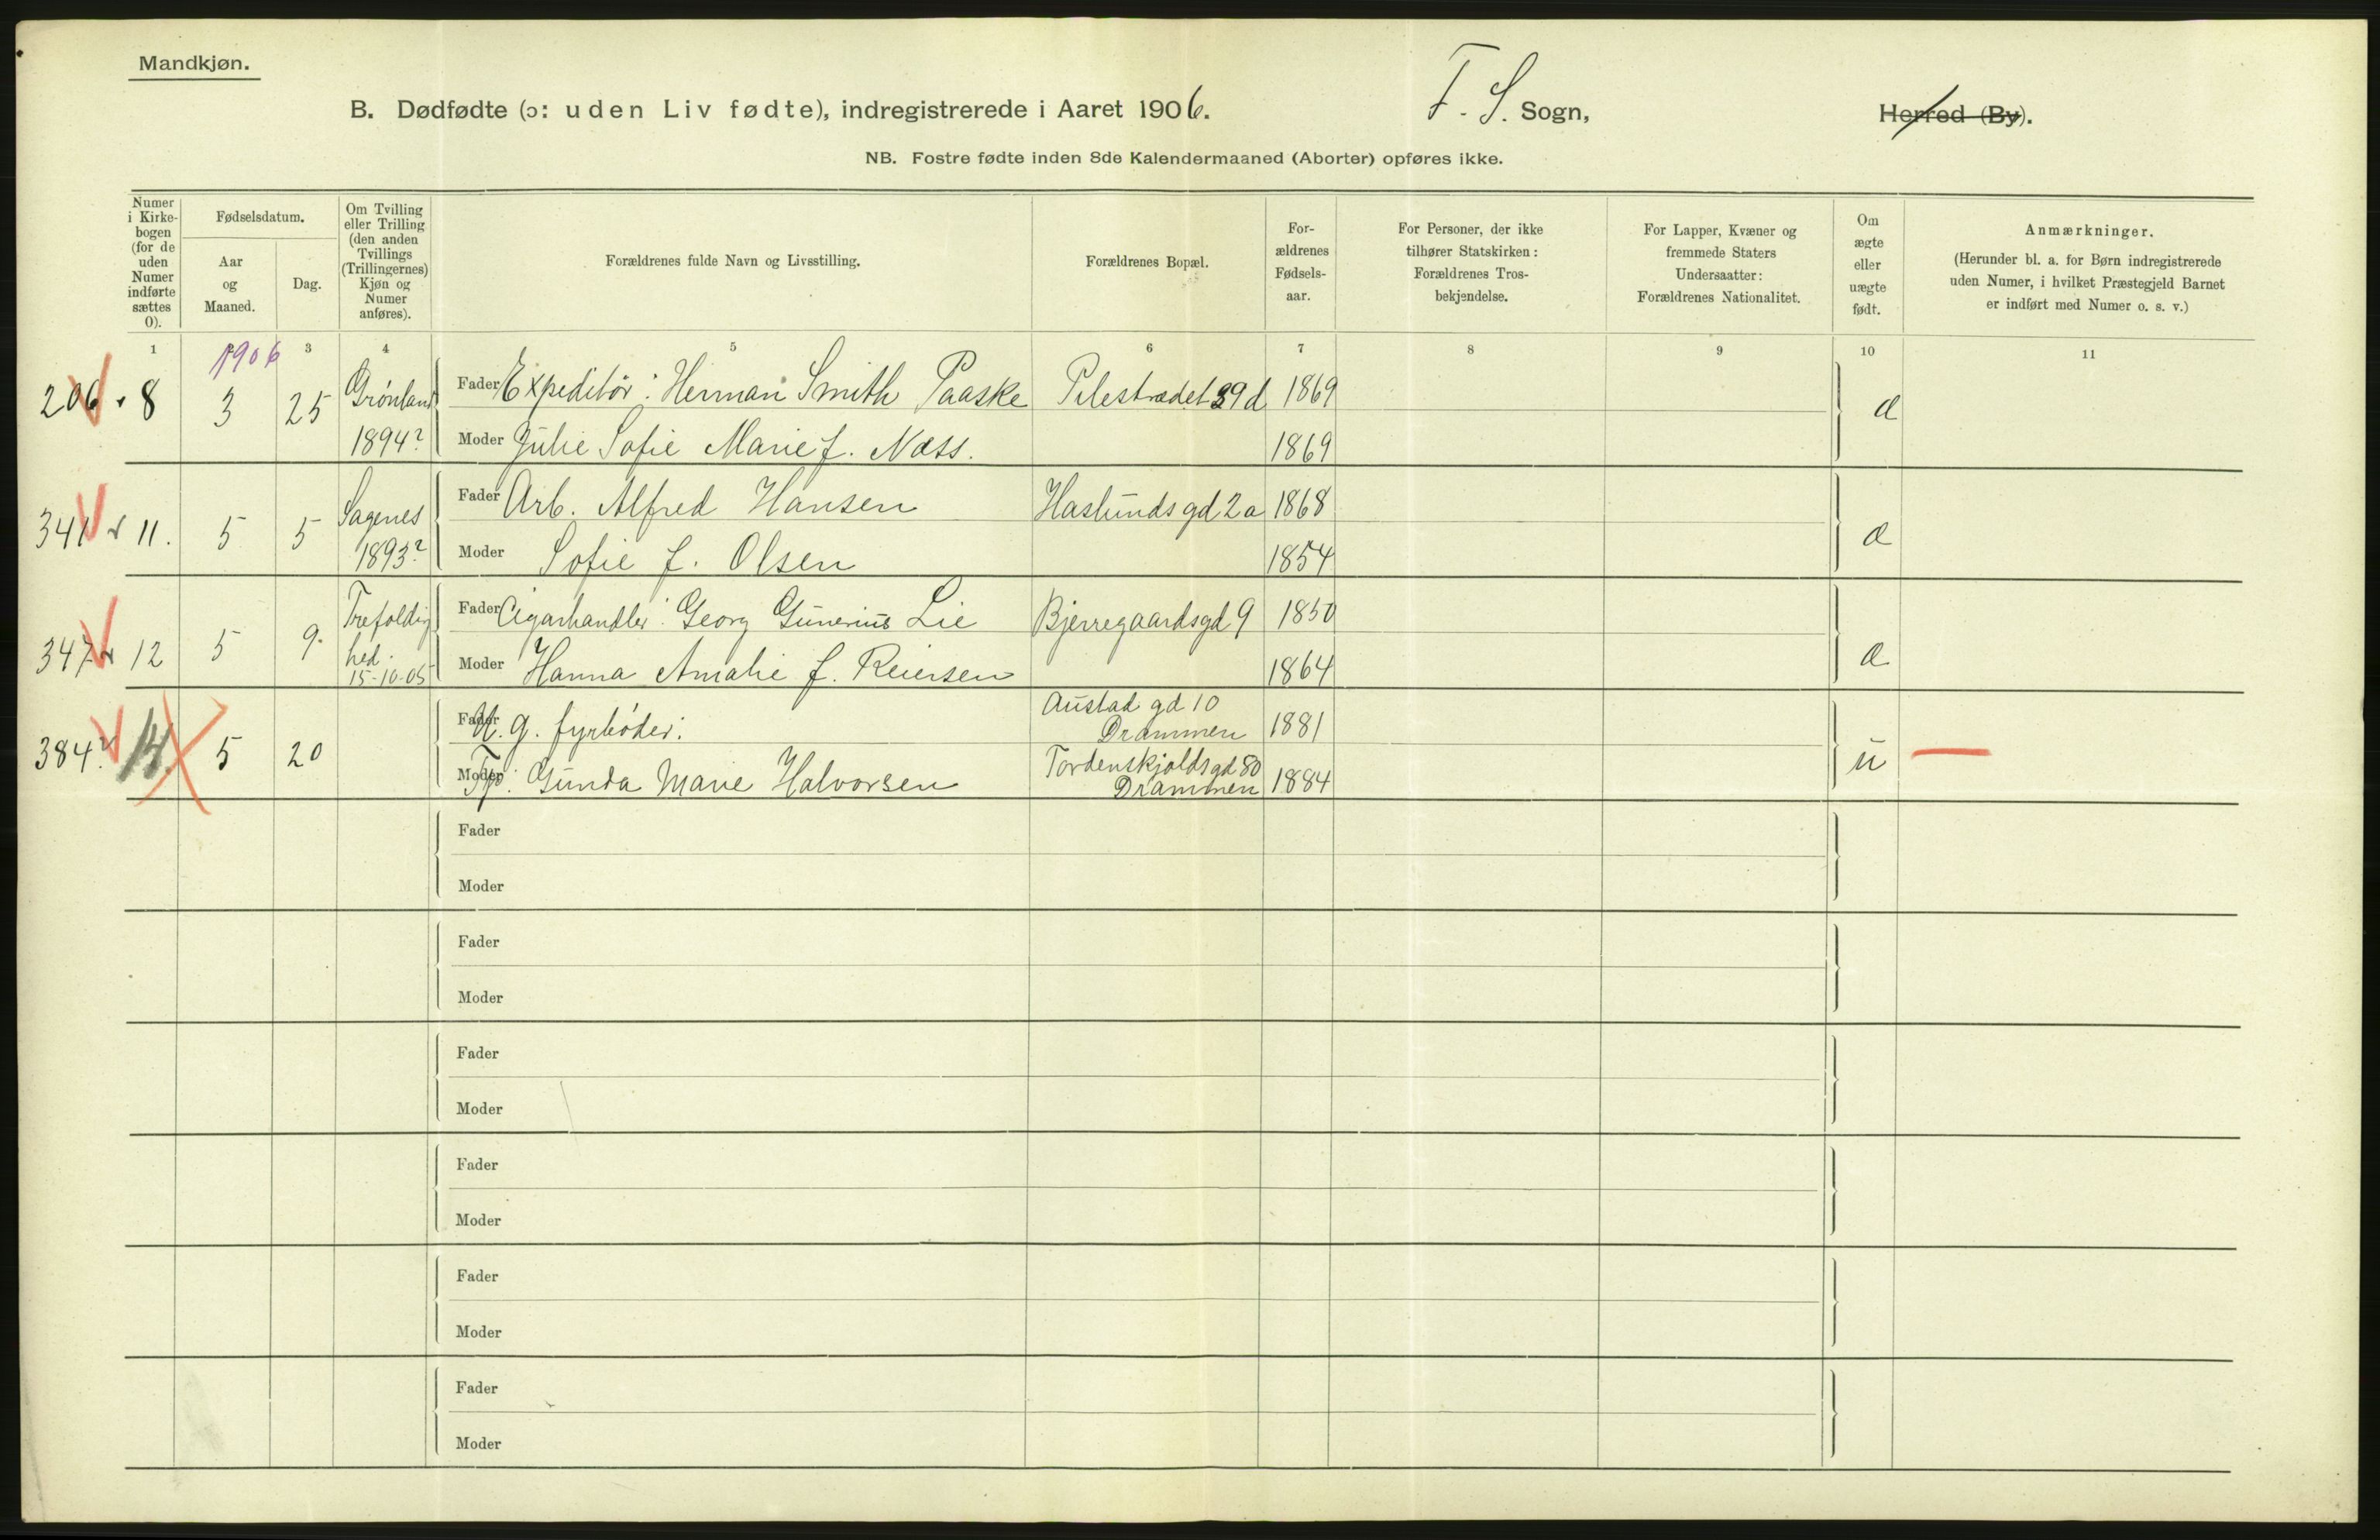 Mandkjøn.
B. Dødfødte (ɔ: uden Liv fødte), indregistrerede i Aaret 1906.
F. S. Sogn,
Herred (By).
NB. Fostre fødte inden 8de Kalendermaaned (Aborter) opføres ikke.
Numer
i Kirke-
bogen
(for de
uden
Numer
indførte
sættes
0).
Fødselsdatum.
Aar
og
Maaned.
Dag.
Om Tvilling
eller Trilling
(den anden
Tvillings
(Trillingernes)
Kjøn og
Numer
anføres).
Forældrenes fulde Navn og Livsstilling.
Forældrenes Bopæl.
For-
ældrenes
Fødsels-
aar.
For Personer, der ikke
tilhører Statskirken:
Forældrenes Tros-
bekjendelse.
For Lapper, Kvæner og
fremmede Staters
Undersaatter:
Forældrenes Nationalitet.
Om
ægte
eller
uægte
født.
Anmærkninger.
(Herunder bl. a. for Børn indregistrerede
uden Numer, i hvilket Præstegjeld Barnet
er indført med Numer o. s. v.)
1 3 4 5 6 7 8 9 10 11
1906
206 8 3 25 Grönland
1894?
Fader Expeditör: Herman Smith Paaske Pilestrædet 39d 1869
Moder Julie Sofie Marie f. Næss. 1869
æ
341 11. 5 5 Sagenes
1893?
Fader Arb. Alfred Hansen Haslunds gd 2a 1868
Moder Sofie f. Olsen 1854
æ
347 12 5 9. Trefoldig
hed.
15-10-05
Fader Cigarhandler: Georg Gunerius Lie Bjerregaardsgd 9 1850
Moder Hanna Amalie f. Reiersen 1864
æ
384 14. 5 20
Fader U. g. fyrböder: Austad gd 10
Drammen 1881
Moder Tjp: Gunda Marie Halvorsen Tordenskjoldsgd 80
Drammen 1884
u
Fader
Moder
Fader
Moder
Fader
Moder
Fader
Moder
Fader
Moder
Fader
Moder